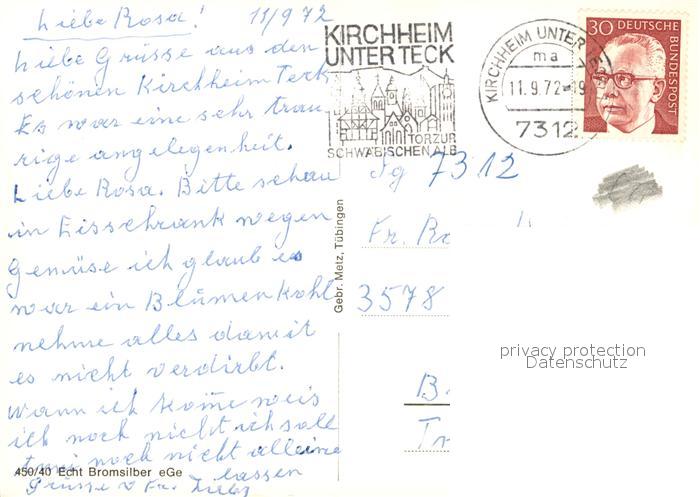 Liebe Rosa! 11/9 72
Liebe Grüsse aus den
schönen Kirchheim Teck
Es war eine sehr trau
rige angelegenheit.
Liebe Rosa. Bitte schau
in Eisschrank wegen
Genüse ich glaub es
war ein Blümen kohl
nehme alles damit
es nicht verdirbt.
Wann ich kome weis
ich noch nicht ich soll
noch nicht alleine
lassen
Grüsse v Fr.
450/40 Echt Bromsilber eGe
Gebr. Metz, Tübingen
KIRCHHEIM
UNTER TECK
TOR ZUR
SCHWÄBISCHEN ALB
KIRCHHEIM UNTER
ma
11.9.72
7312
30 DEUTSCHE
BUNDESPOST
7312
Fr.
3578
privacy protection
Datenschutz